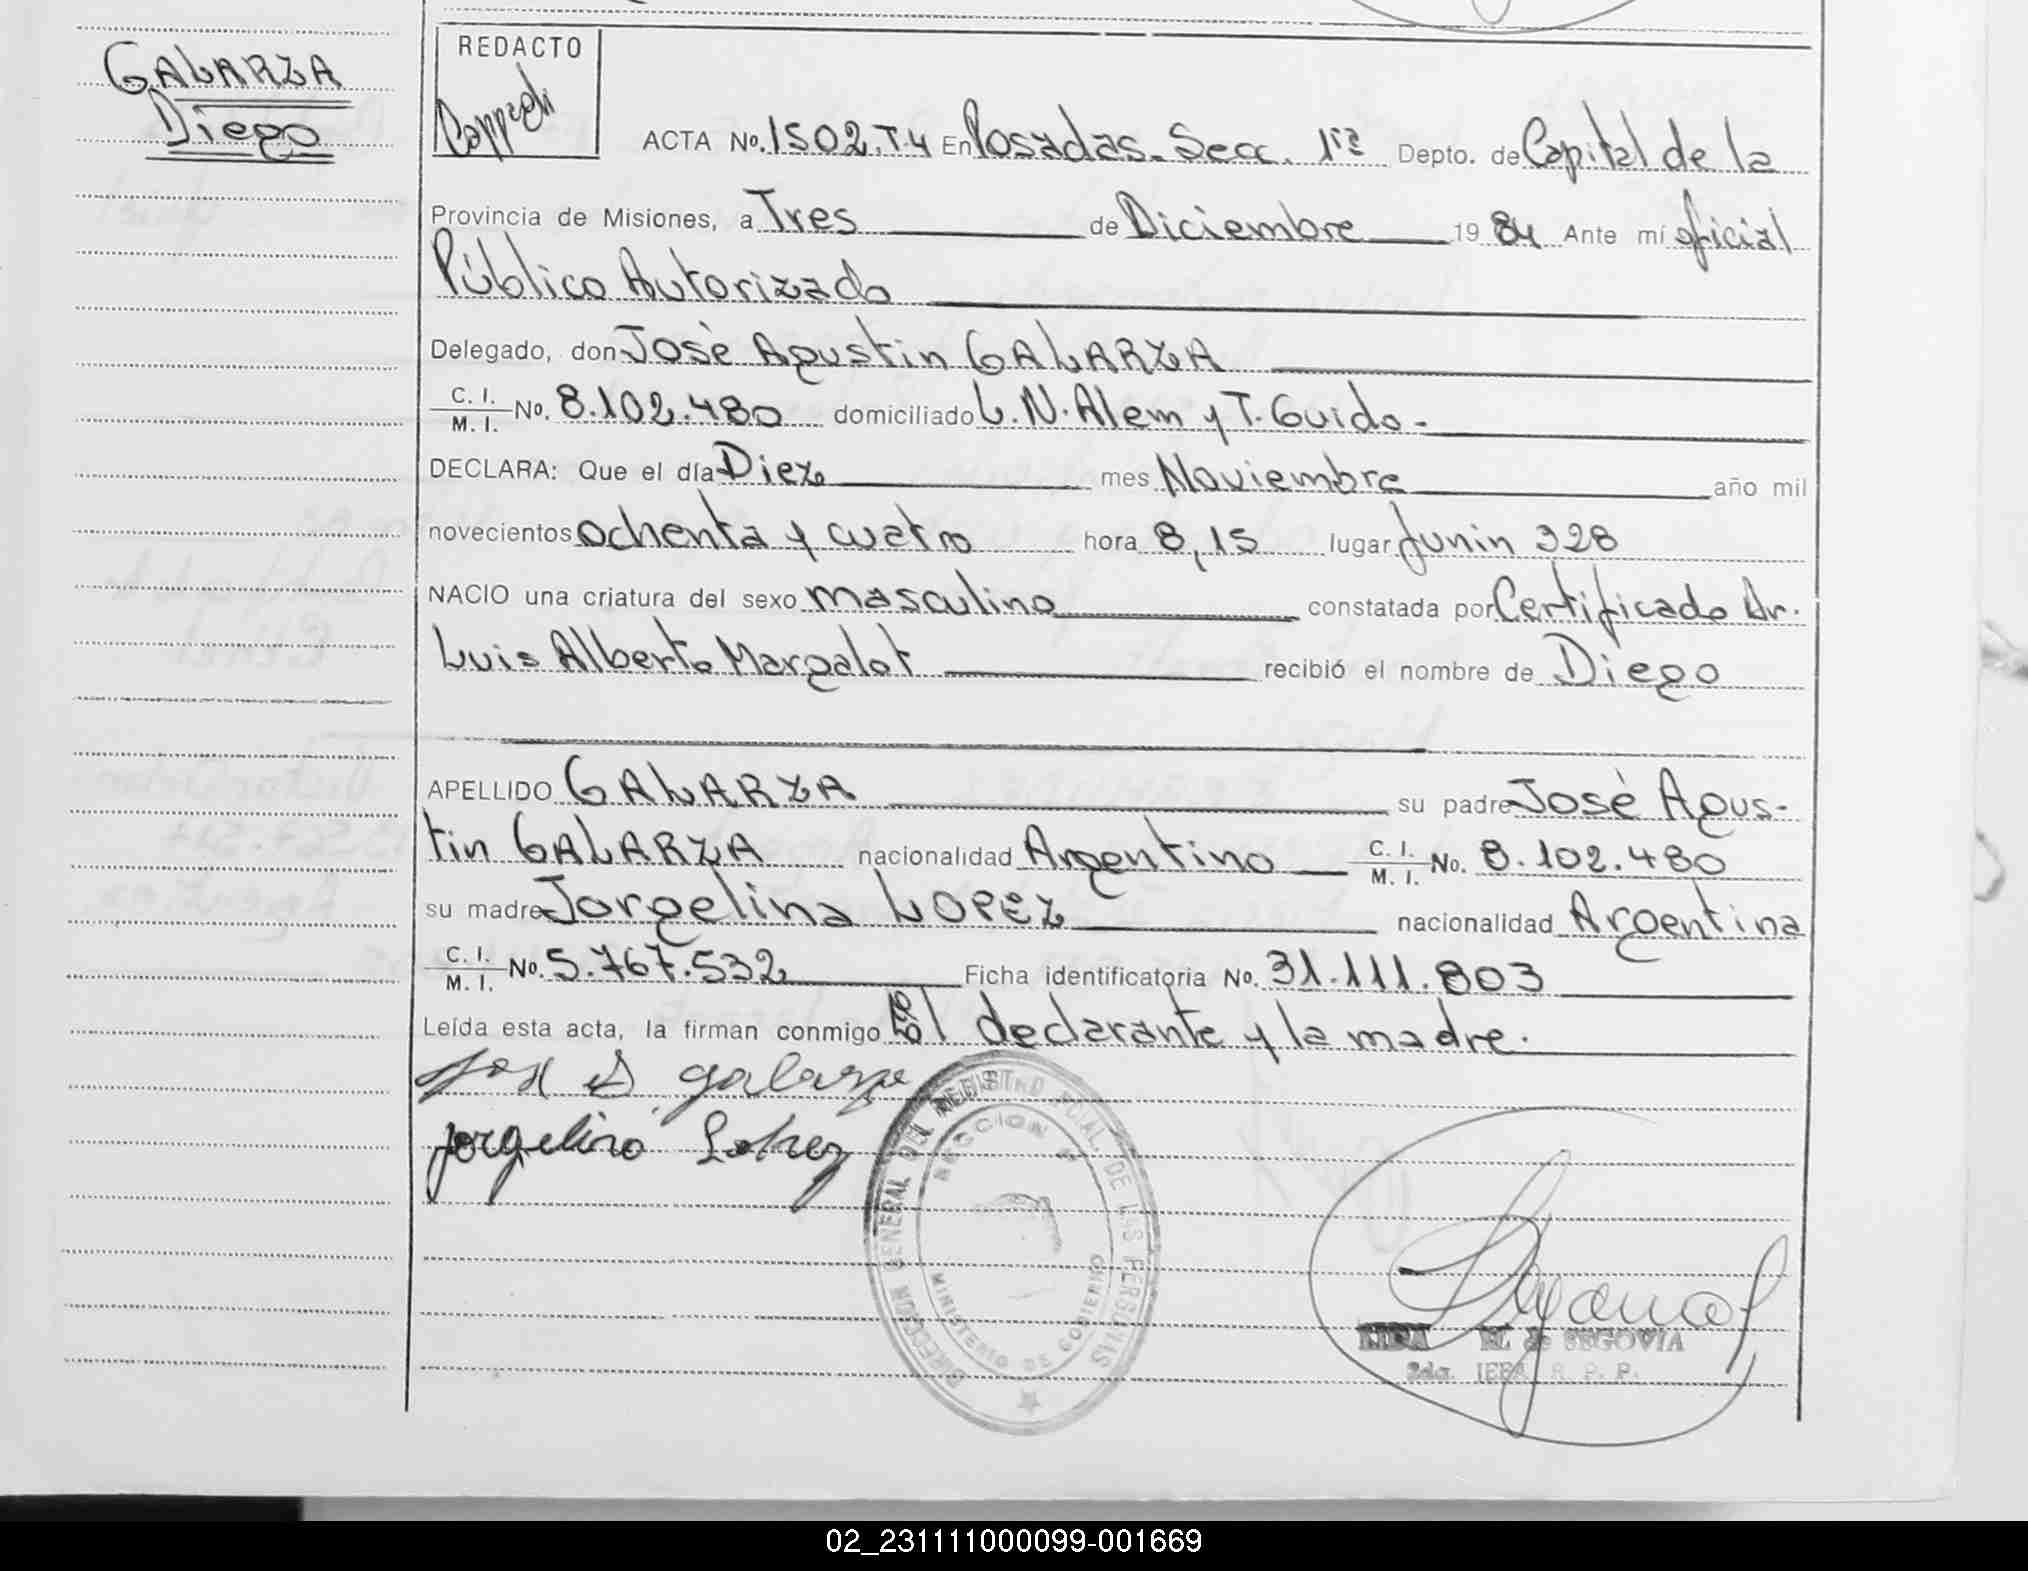 GALARZA
Diego
REDACTO
ACTA No. 1502.T.4 En Posadas. Secc. 1ra Depto. de Capital de la
Provincia de Misiones, a Tres de Diciembre 1984 Ante mí oficial
Público Autorizado
Delegado, don Josè Agustin GALARZA
C. I.
M. I. No. 8.102.480 domiciliado L.N. Alem y T. Guido.
DECLARA: Que el día Diez mes Noviembre año mil
novecientos ochenta y cuatro hora 8,15 lugar Junin 328
NACIO una criatura del sexo masculino constatada por Certificado Dr.
Luis Alberto Margalot recibió el nombre de Diego
APELLIDO GALARZA su padre Josè Agus-
tin GALARZA nacionalidad Argentino C. I.
M. I. No. 8.102.480
su madre Jorgelina LOPEZ nacionalidad Argentina
C. I.
M. I. No. 5.767.532 Ficha identificatoria No. 31.111.803
Leída esta acta, la firman conmigo el declarante y la madre.
Jose A galarza
jorgelina Lopez
DIRECCION GENERAL DEL REGISTRO PCIAL. DE LAS PERSONAS
SECCION 1ª
MINISTERIO DE GOBIERNO
de SEGOVIA
2da. JEFA R. P. P.
02_231111000099-001669